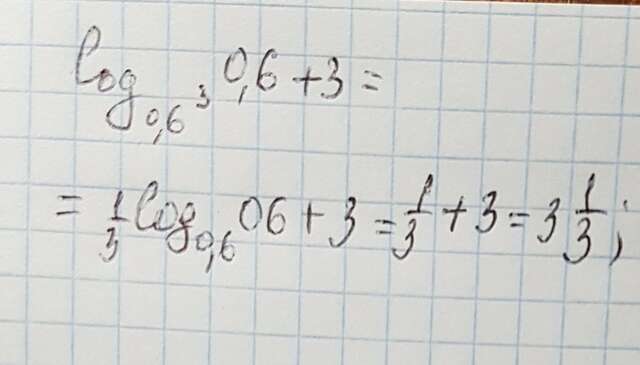 log₀,₆³ 0,6 + 3 =
= 1/3 log₀,₆ 06 + 3 = 1/3 + 3 = 3 1/3;